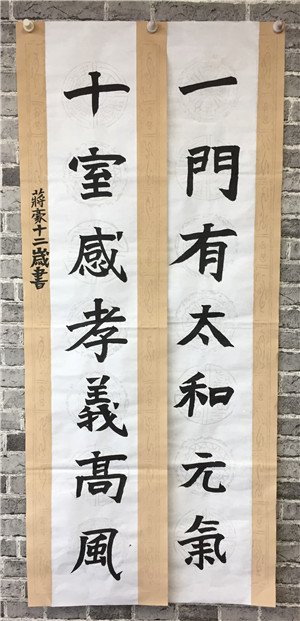 一門有太和元氣
十室感孝義高風
蔣豪十二歲書